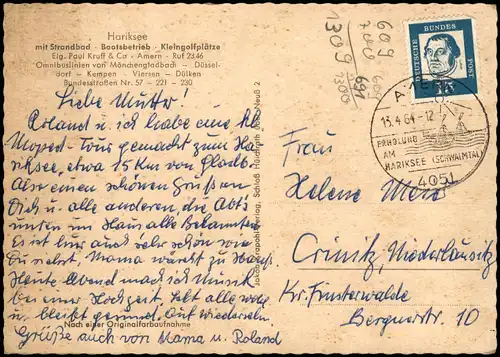 Hariksee
mit Strandbad · Bootsbetrieb · Kleingolfplätze
Eig. Paul Kruff & Co · Amern · Ruf 2346
Omnibuslinien von Mönchengladbach – Düssel-
dorf – Kempen – Viersen – Dülken
Bundesstraßen Nr. 57 – 221 – 230
Liebe Mutter!
Roland u. ich habe eine kl.
Moped-Tour gemacht zum Ha-
riksee, etwa 15 Km von Gladb.
Also einen schönen Gruß an
Dich u. alle anderen, die
unten im Haus alle Bekannten.
Es ist hier auch sehr schön wie
Du siehst, Mama
Heute Abend mach ich Musik
bei einer Hochzeit. Lebt alle wohl
u. bleibt gesund. Auf Wiedersehn.
Grüße auch von Mama u. Roland
Nach einer Originalfarbaufnahme
609
700
1309
DEUTSCHE BUNDESPOST
15
13.4.64-12
ERHOLUNG
AM
HARIKSEE (SCHWALMTAL)
4051
Frau
Helene
Crinitz, Niederlausitz
Kr. Finsterwalde
Bergnerstr. 10